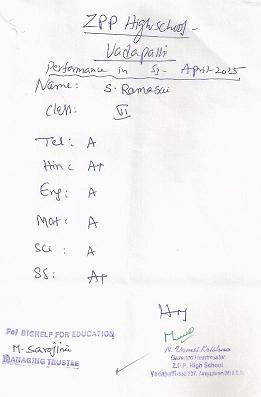 ZPP High school -
Vadapalli
Performance in SJ- April-2025
Name: S. Ramasai
Class: VI
Tel: A
Hin: A+
Eng: A
Mat: A
Sci: A
SS: A+
Hry
For BIGHELP FOR EDUCATION
M. Sarojini
MANAGING TRUSTEE
N. Vamsi Krishna
Gazetted Headmaster
Z.P.P. High School